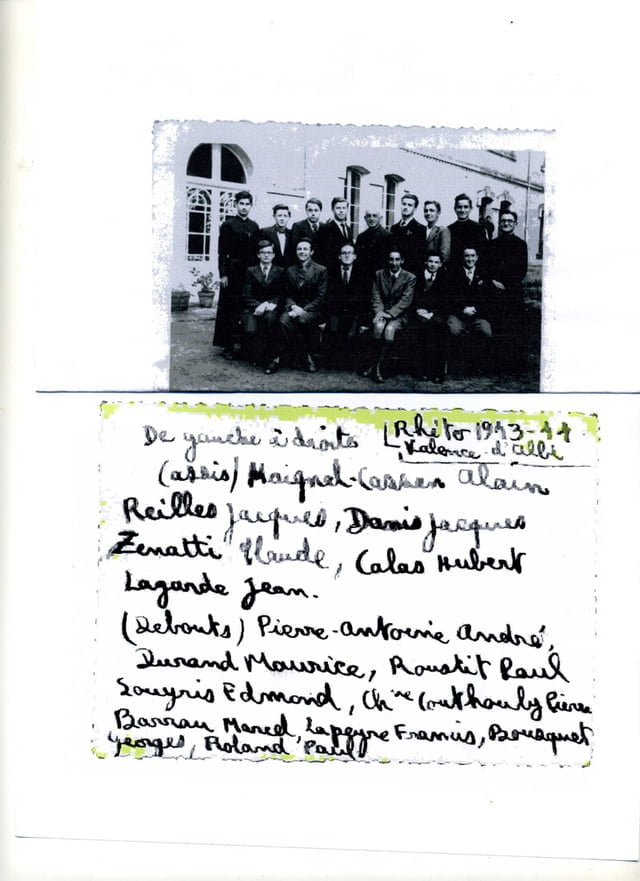 De gauche à droite Rhéto 1943-44
Valence d'Albi
(assis) Maignel-Cassen Alain
Reilles Jacques, Danis Jacques
Zenatti Claude, Calas Hubert
Lagarde Jean.
(Debouts) Pierre-Antoine André,
Durand Maurice, Roustit Paul
Souyris Edmond, Chne Couthouly Pierre
Barrau Marcel, Lapeyre Francis, Bousquet
Georges, Roland Paul